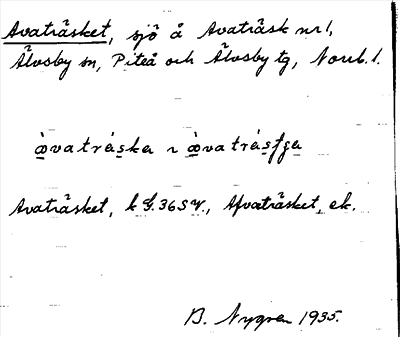 Avaträsket, sjö å Avaträsk nr 1,
Älvsby sn, Piteå och Älvsby tg, Norrb. l.
àvatrȧska ~ àvatrȧsʃga
Avaträsket, k bl. 36 S V., Afvaträsket, ek.
B. Nygren 1935.